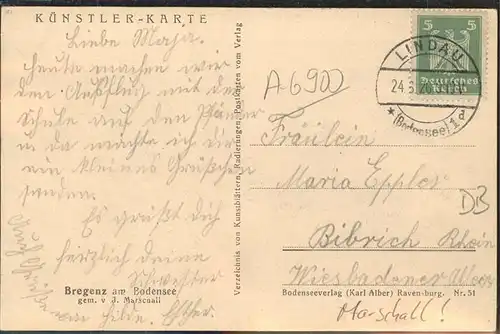 KÜNSTLER-KARTE
Liebe Maja.
Heute machen wir
den Ausflug mit der
Schule auf den Pfänder
u da möchte ich dir
ein kleines Grüßchen
senden.
Es grüßt dich
herzlich deine
Schwester
Esther.
Auch Grüße
von Hilde.
Bregenz am Bodensee
gem. v. J. Marschall
Verzeichnis von Kunstblättern, Radierungen, Postkarten vom Verlag
5 5
Deutsches
Reich
LINDAU
(Bodensee)
A-6900
Fräulein
Maria Eppler
DB
Bibrich Rhein
Wiesbadener
Bodenseeverlag (Karl Alber) Ravensburg. Nr. 51
Marschall!